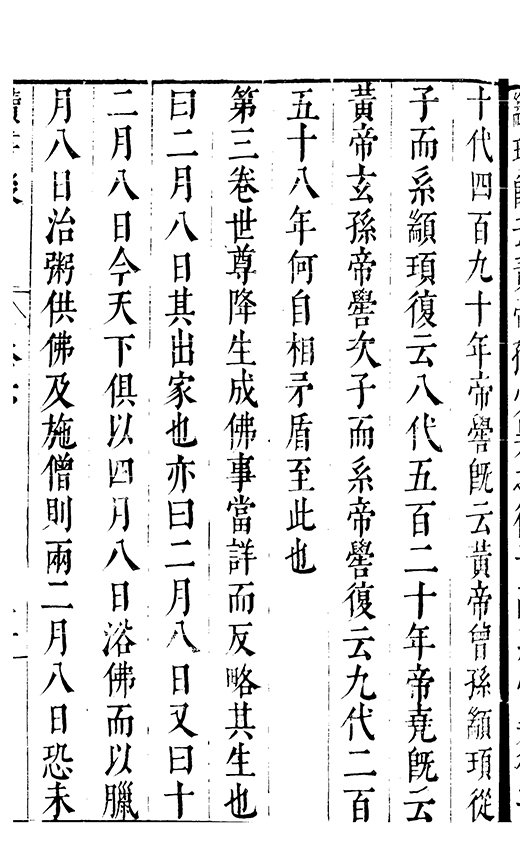 十代四百九十年帝嚳旣云黃帝曾孫顓頊從
子而系顓頊復云八代五百二十年帝堯旣云
黃帝玄孫帝嚳次子而系帝嚳復云九代二百
五十八年何自相矛盾至此也
第三卷世尊降生成佛事當詳而反略其生也
曰二月八日其出家也亦曰二月八日又曰十
二月八日今天下俱以四月八日浴佛而以臘
月八日治粥供佛及施僧則兩二月八日恐未